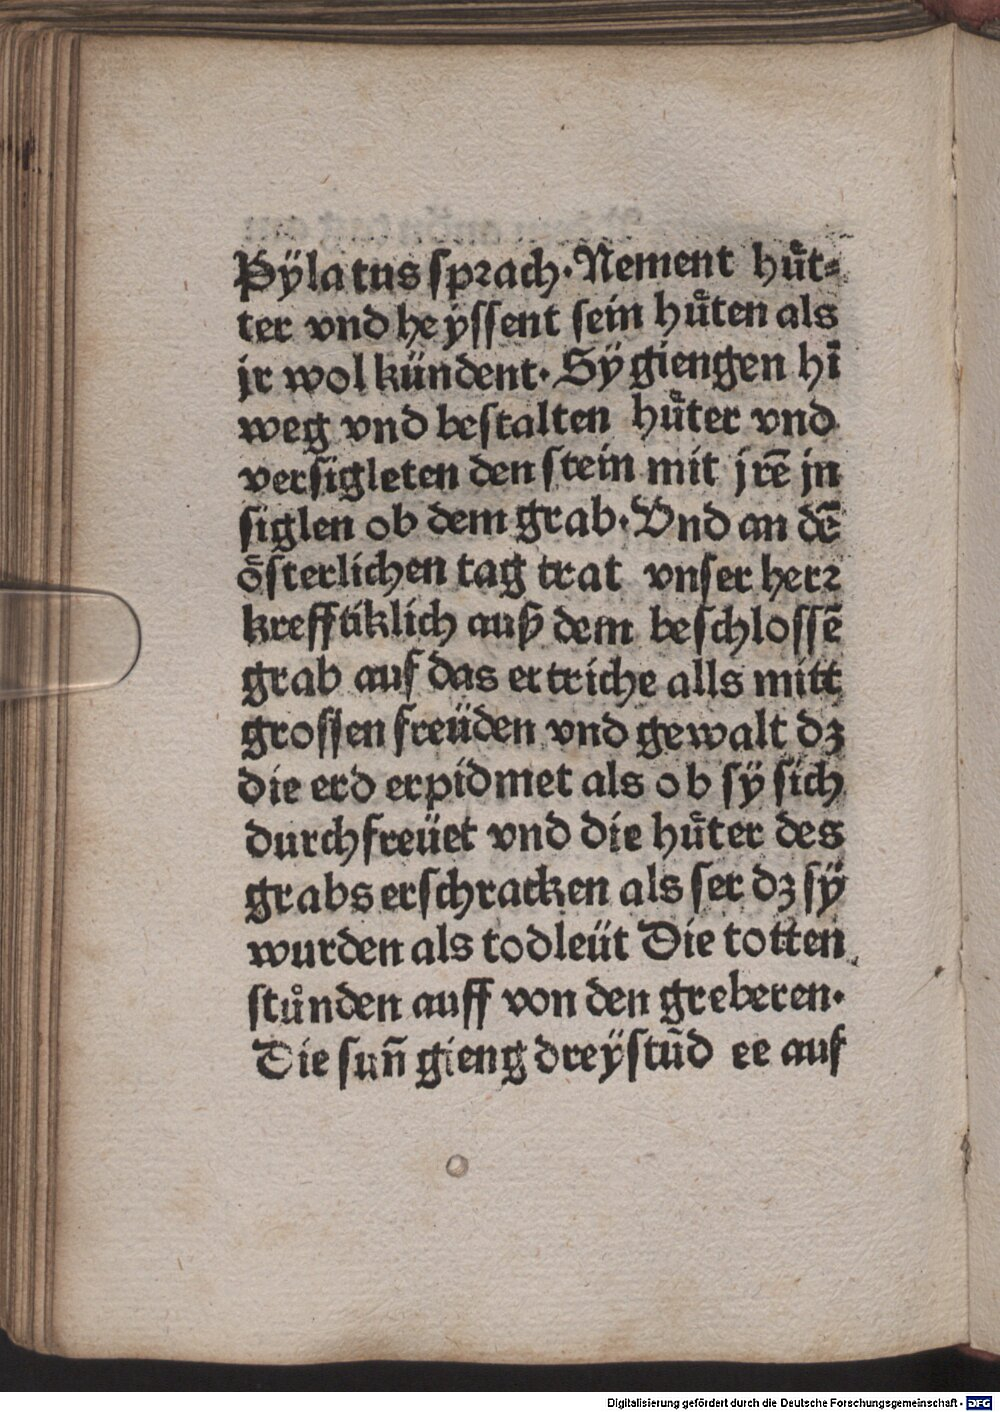 Pÿlatus sprach·Nement huͤt⸗
ter vnd heyssent sein huͤten als
jr wol kündent· Sÿ giengen hī
weg vnd bestalten huͤter vnd
versigleten den stein mit jrē jn
siglen ob dem grab·Vnd an dē
österlichen tag trat vnser herr
krefftiklich auß dem beschlossē
grab auf das ertriche alls mitt
grossen freüden vnd gewalt dz
die erd erpidmet als ob sÿ sich
durchfreüet vnd die huͤter des
grabs erschracken als ser dz sÿ
wurden als todleüt Die totten
stuͦnden auff von den greberen·
Die sun̄ gieng dreÿ stūd ee auf
Digitalisierung gefördert durch die Deutsche Forschungsgemeinschaft - DFG